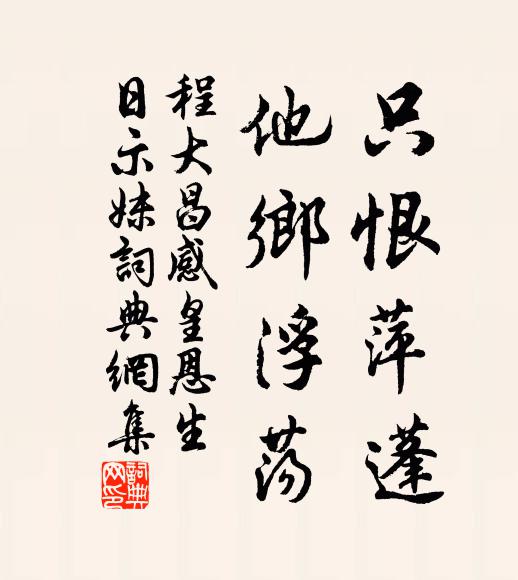 只恨萍蓬
他鄉浮蕩
程大昌感皇恩生
日示妹詞典網集
詞典網印